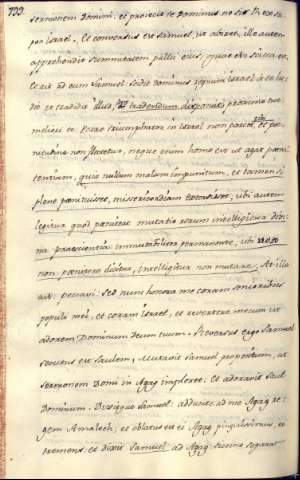 733
sermonem Domini, et projecit te Dominus ne sis Rex su
per israel. Et conversus est samuel, ut abiret, ille autem
apprehendit summitatem pallii ejus, quae et scissa est.
Et ait ad eum Samuel scidit Dominus regnum israel à te ho
die et tradidit illud, tradendum disposuit proximo tuo
meliori te. Porro triumphator in israel non parcet, et poe
nitudine non flectetur, neque enim homo est ut agat poeni
tentiam, quia nullum malum impunitum, et tamen si
plene poenituisset, misericordiam, ubi autem
legitur quod poenitere mutatio rerum intelligitur divi
na praescientia immutabiliter permanente, ubi vero
non poenitere dicitur, intelligitur non mutare. At ille
ait. peccavi. Sed nunc honora me coram senioribus
populi mei, et coram israel, et revertere mecum ut
adorem Dominum Deum tuum. Reversus ergo Samuel
secutus est saulem, Mutavit Samuel propositum, ut
sermonem Domi in Agag impleret. Et adoravit Saul
Dominum. Dixitque Samuel. adducite ad me Agag Re
gem Amalech, et oblatus est ei Agag pinguissimus, et
tremens. et dixit Samuel ad Agag. siccine separat